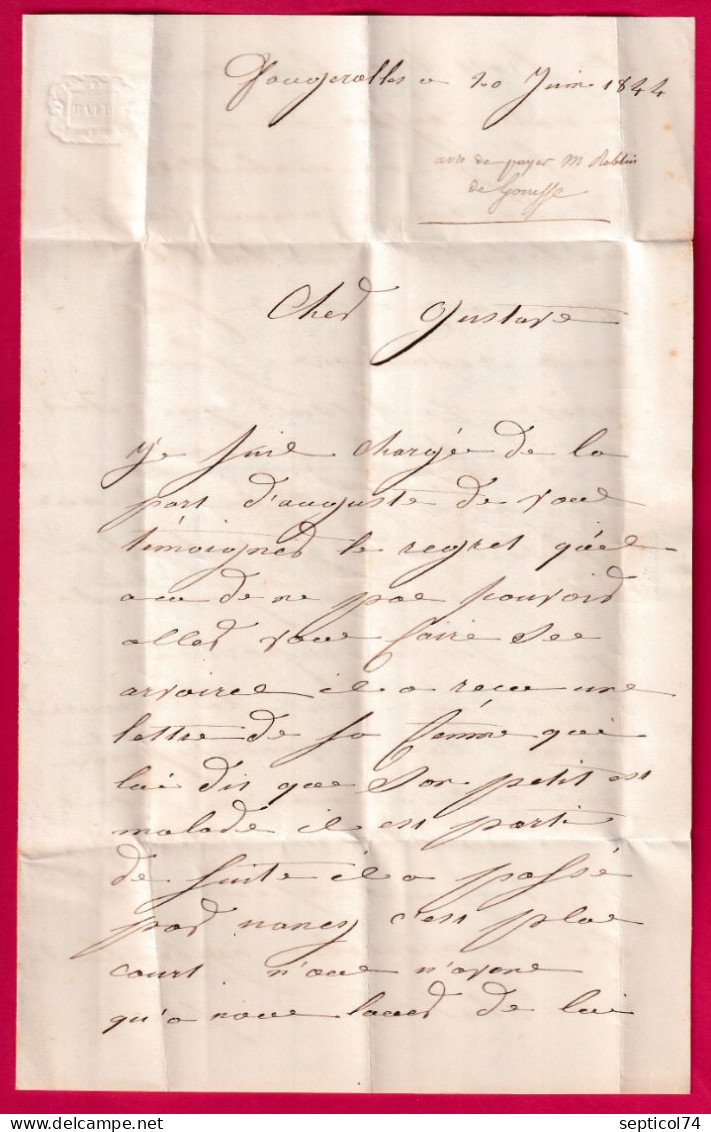 BATH
Fougerolles a 20 Juin 1844
avis de payer M Roblin
de Gonesse
Cher Gustave
Je suis chargée de la
part d'auguste de vous
témoigner le regret qu'il
a eu de ne pas pouvoir
aller vous faire ses
arvoires il a recu une
lettre de sa femme qui
lui dit que son petit est
malade il est parti
de suite il a passé
par nancy c'est plus
court n'ous n'avons
qu'a nous louer de lui
delcampe.net
septicol74